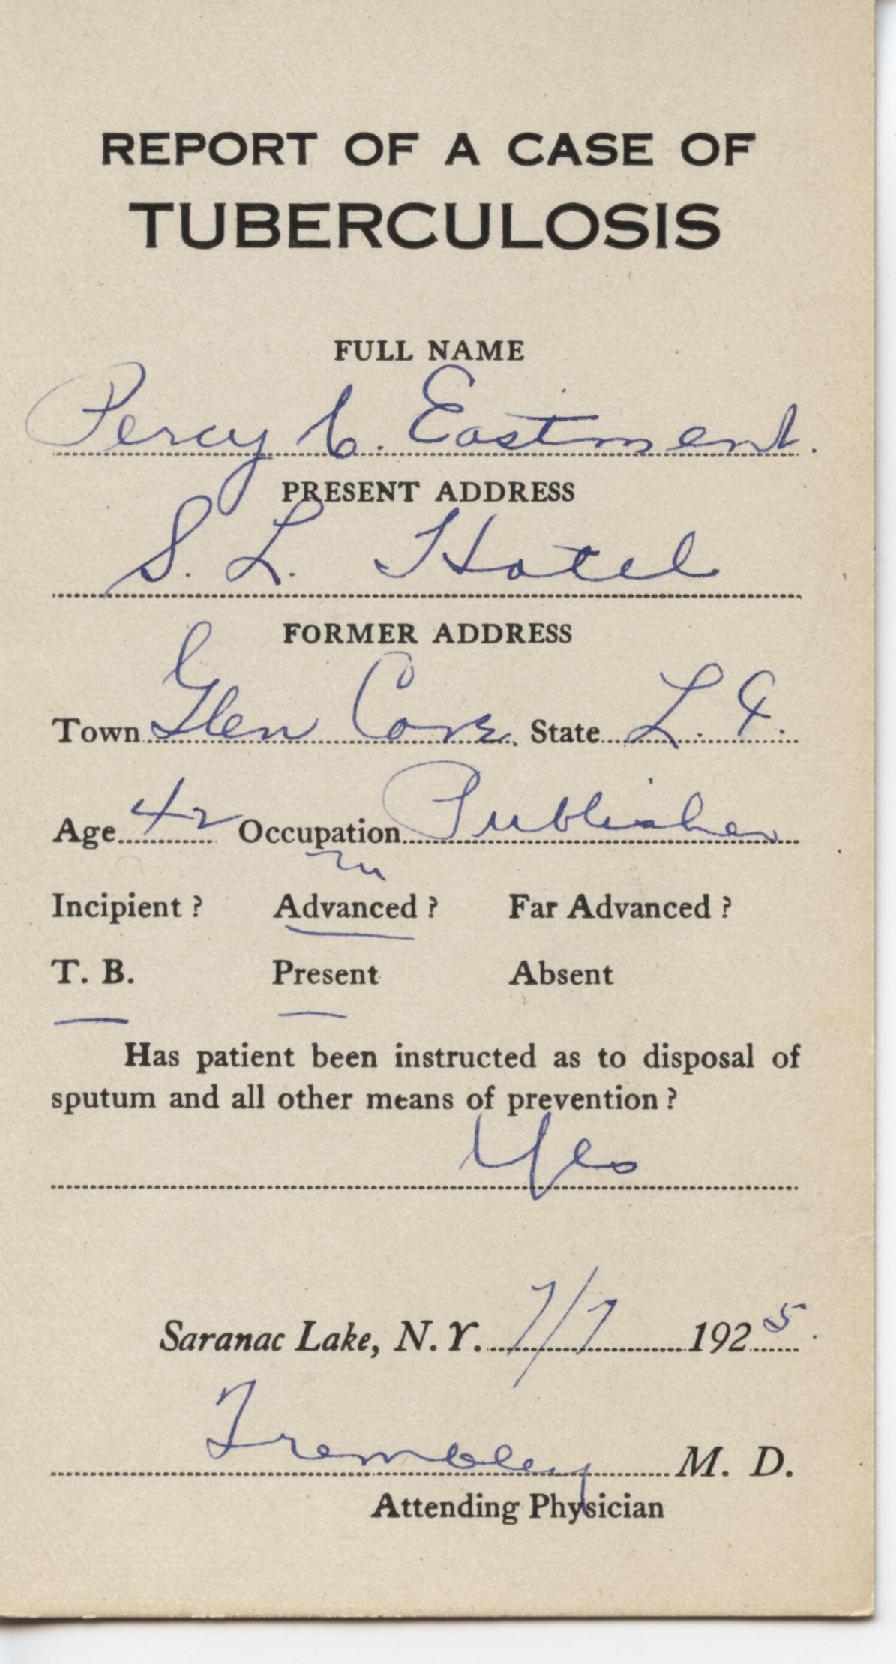 REPORT OF A CASE OF
TUBERCULOSIS
FULL NAME
Percy C. Eastment.
PRESENT ADDRESS
S. L. Hotel
FORMER ADDRESS
Town Glen Cove. State L. I.
Age 42 Occupation Publisher
Incipient? Advanced? Far Advanced?
T. B. Present Absent
Has patient been instructed as to disposal of
sputum and all other means of prevention?
Yes
Saranac Lake, N. Y. 7/7 1925.
Trembley M. D.
Attending Physician